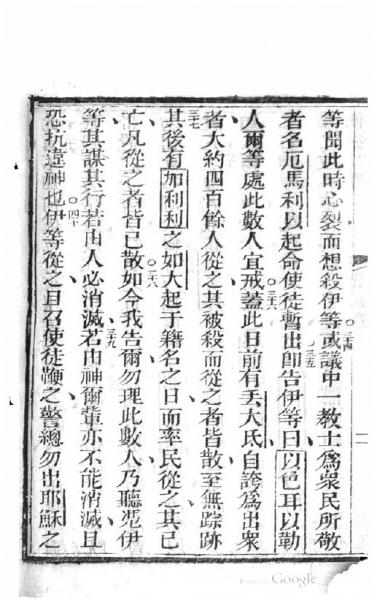 等聞此時心裂而想殺伊等○三四或議中一教士為衆民所敬
者名厄馬利以起命使徒暫出○三五卽告伊等曰以色耳以勒
人爾等處此數人宜戒○三六葢此日前有丟大氏自誇為出衆
者大約四百餘人從之其被殺而從之者皆散至無踪跡
三七其後有加利利之如大起于籍名之日而率民從之其已
亡凡從之者皆已散○三八如今我告爾勿理此數人乃聽伊
等其謀其行若由人必消滅○三九若由神爾輩亦不能消滅且
恐抗違神也○四十伊等從之且召使徒鞭之警總勿出耶穌之
Google